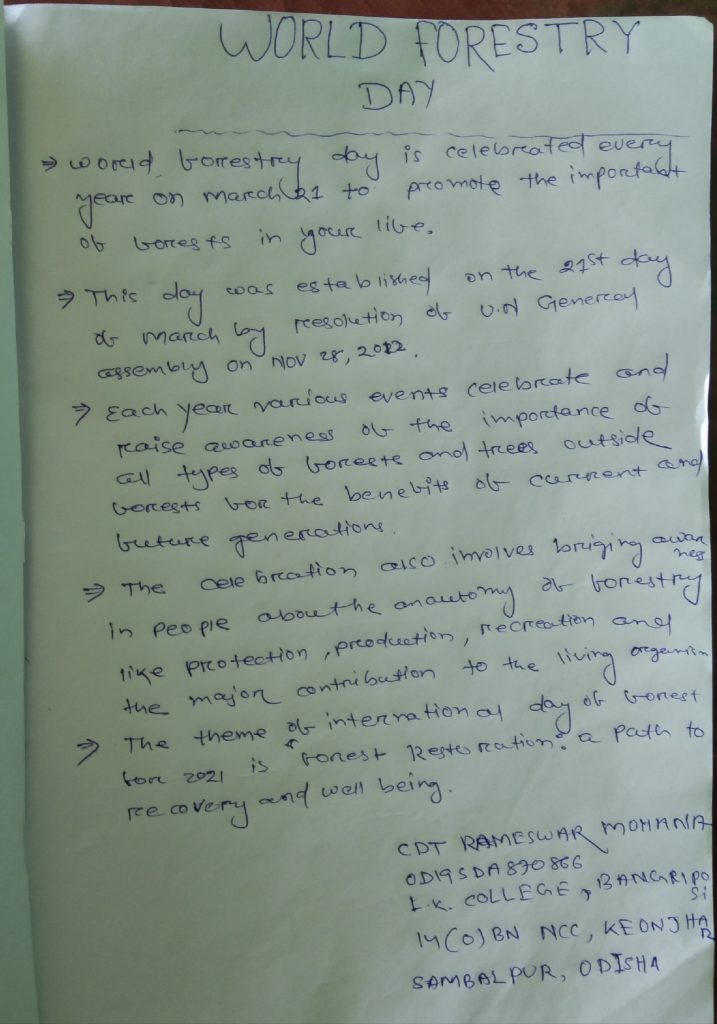 WORLD FORESTRY
DAY
⇒ World forestry day is celebrated every
year on march 21 to promote the importakt
of forests in your life.
⇒ This day was established on the 21st day
of march by resolution of U.N General
assembly on NOV 28, 2012.
⇒ Each year various events celebrate and
raise awareness of the importance of
all types of foreste and trees outside
forests for the benefits of current and
future generations.
⇒ The celebration also involves briging awar
ness
in people about the anautomy of forestry
like protection, production, recreation and
the major contribution to the living organism
⇒ The theme of international day of forest
for 2021 is "forest Restoration: a path to
recovery and well being.
CDT RAMESWAR MOHANTA
OD19SDA870866
L.K. COLLEGE, BANGRIPO
SI
14(O)BN NCC, KEONJHA
R
SAMBALPUR, ODISHA